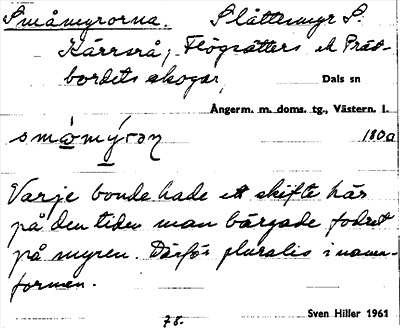 Småmyrorna. Slåttmyr S.
Kärrsrå, Flögsätters ok Präst-
bordets skogar, Dals sn
Ångerm. m. doms. tg., Västern. l.
smòmýrɔn 180a
Varje bonde hade ett skifte här
på den tiden man bärgade fodret
på myren. Därför pluralis i namn-
formen.
78. Sven Hiller 1961